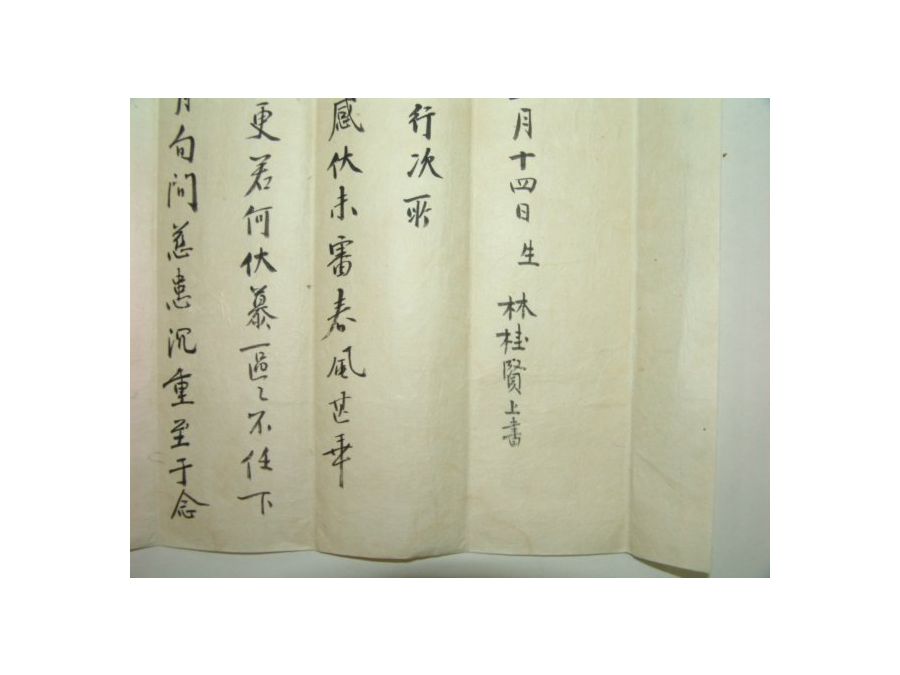 月十四日 生 林桂賢上書
行次所
感伏未審春風甚乖
更若何伏慕區〻不任下
旬間慈患沉重至于念